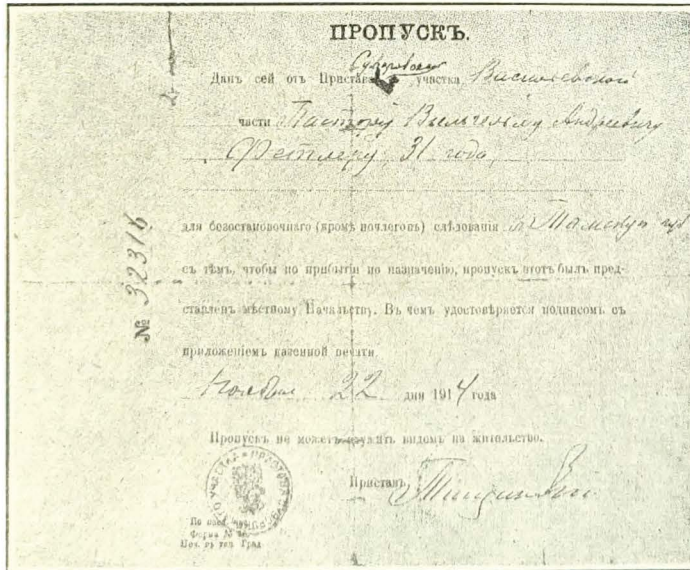 ПРОПУСКЪ.
Суворовскаго
Данъ сей отъ Пристава участка Василевской
части Пастору Вильгельму Андреевичу
Фетлеру, 31 года,
для безостановочнаго (кромѣ ночлеговъ) слѣдованія въ Томскую губ
съ тѣмъ, чтобы по прибытіи по назначенію, пропускъ этотъ былъ пред-
ставленъ мѣстному Начальству. Въ чемъ удостовѣряется подписомъ съ
приложеніемъ казенной печати.
№ 32316
Ноября 22 дня 1914 года
Пропускъ не можетъ служить видомъ на жительство.
Приставъ
УЧАСТКА ПРИСТАВЪ
По
Форма №
Град